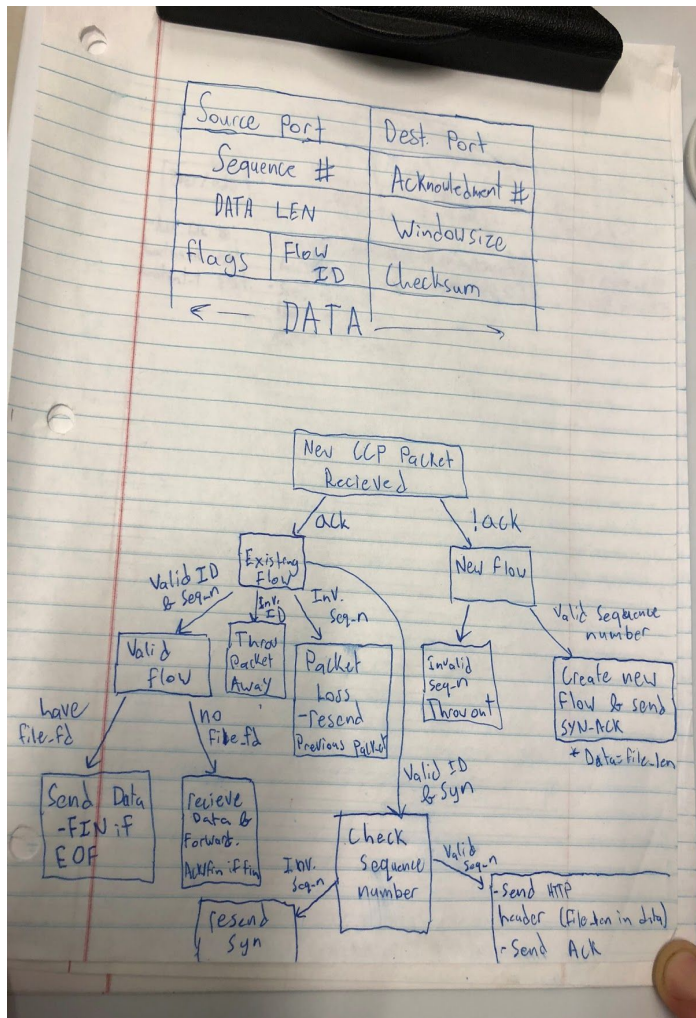 Source Port
Dest. Port
Sequence #
Acknowledment #
DATA LEN
Windowsize
flags
Flow
ID
Checksum
DATA
New CCP Packet
Recieved
ack
!ack
Existing
flow
New flow
Valid ID
& Seq_n
Inv.
ID
Inv.
Seq_n
Valid Sequence
number
Valid
flow
Throw
Packet
Away
Packet
Loss
-resend
Previous Packet
Invalid
seq_n
Throw out
Create new
Flow & send
SYN-ACK
* Data=file_len
have
file_fd
no
file_fd
Valid ID
& Syn
Send Data
-FIN if
EOF
recieve
Data &
Forward.
Ack/fin if fin
Check
Sequence
number
Inv.
seq_n
Valid
seq_n
resend
syn
-Send HTTP
header (file_len in data)
- Send Ack